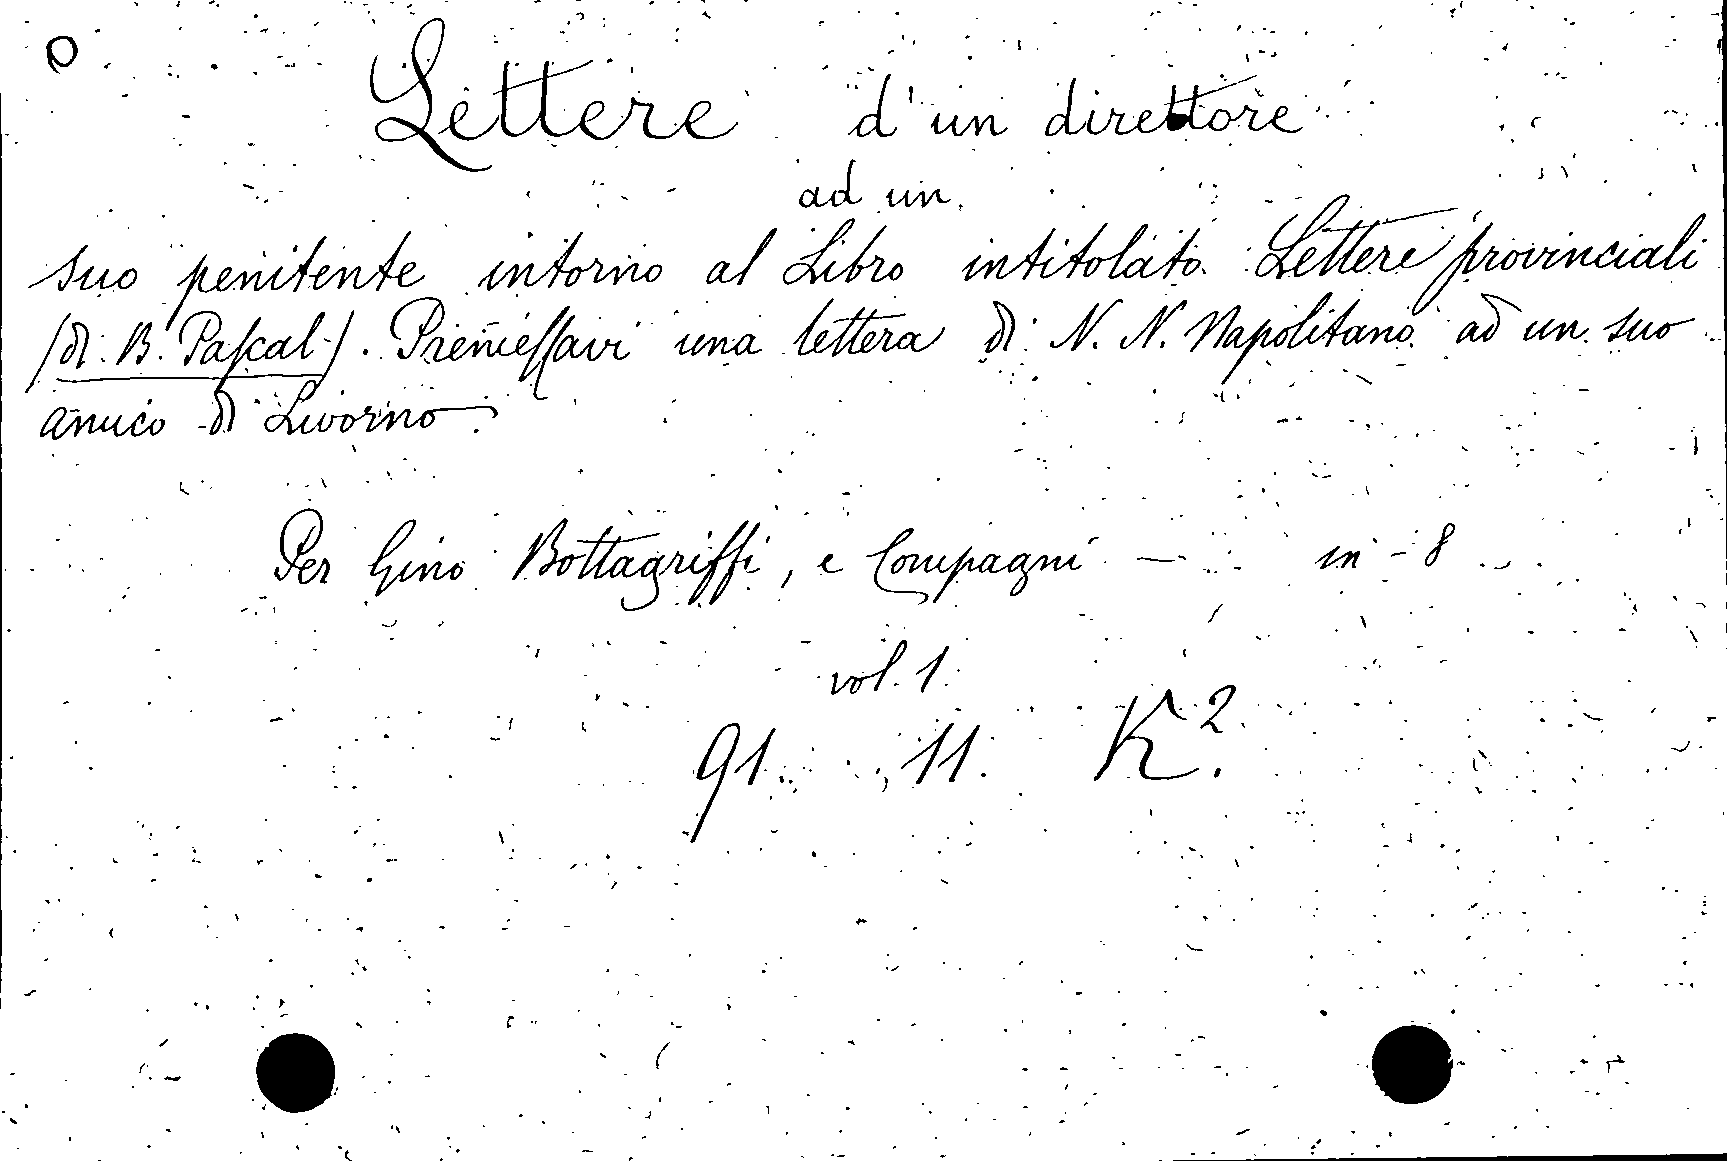 O
Lettere d'un direttore
ad un
suo penitente intorno al Libro intitolato Lettere provinciali
(di B. Paſcal). Premeſſavi una lettera di N. N. Napolitano ad un suo
amico di Livorno.
Per Gino Bottagriffi, e Compagni — in - 8
vol. 1.
91. 11. K².